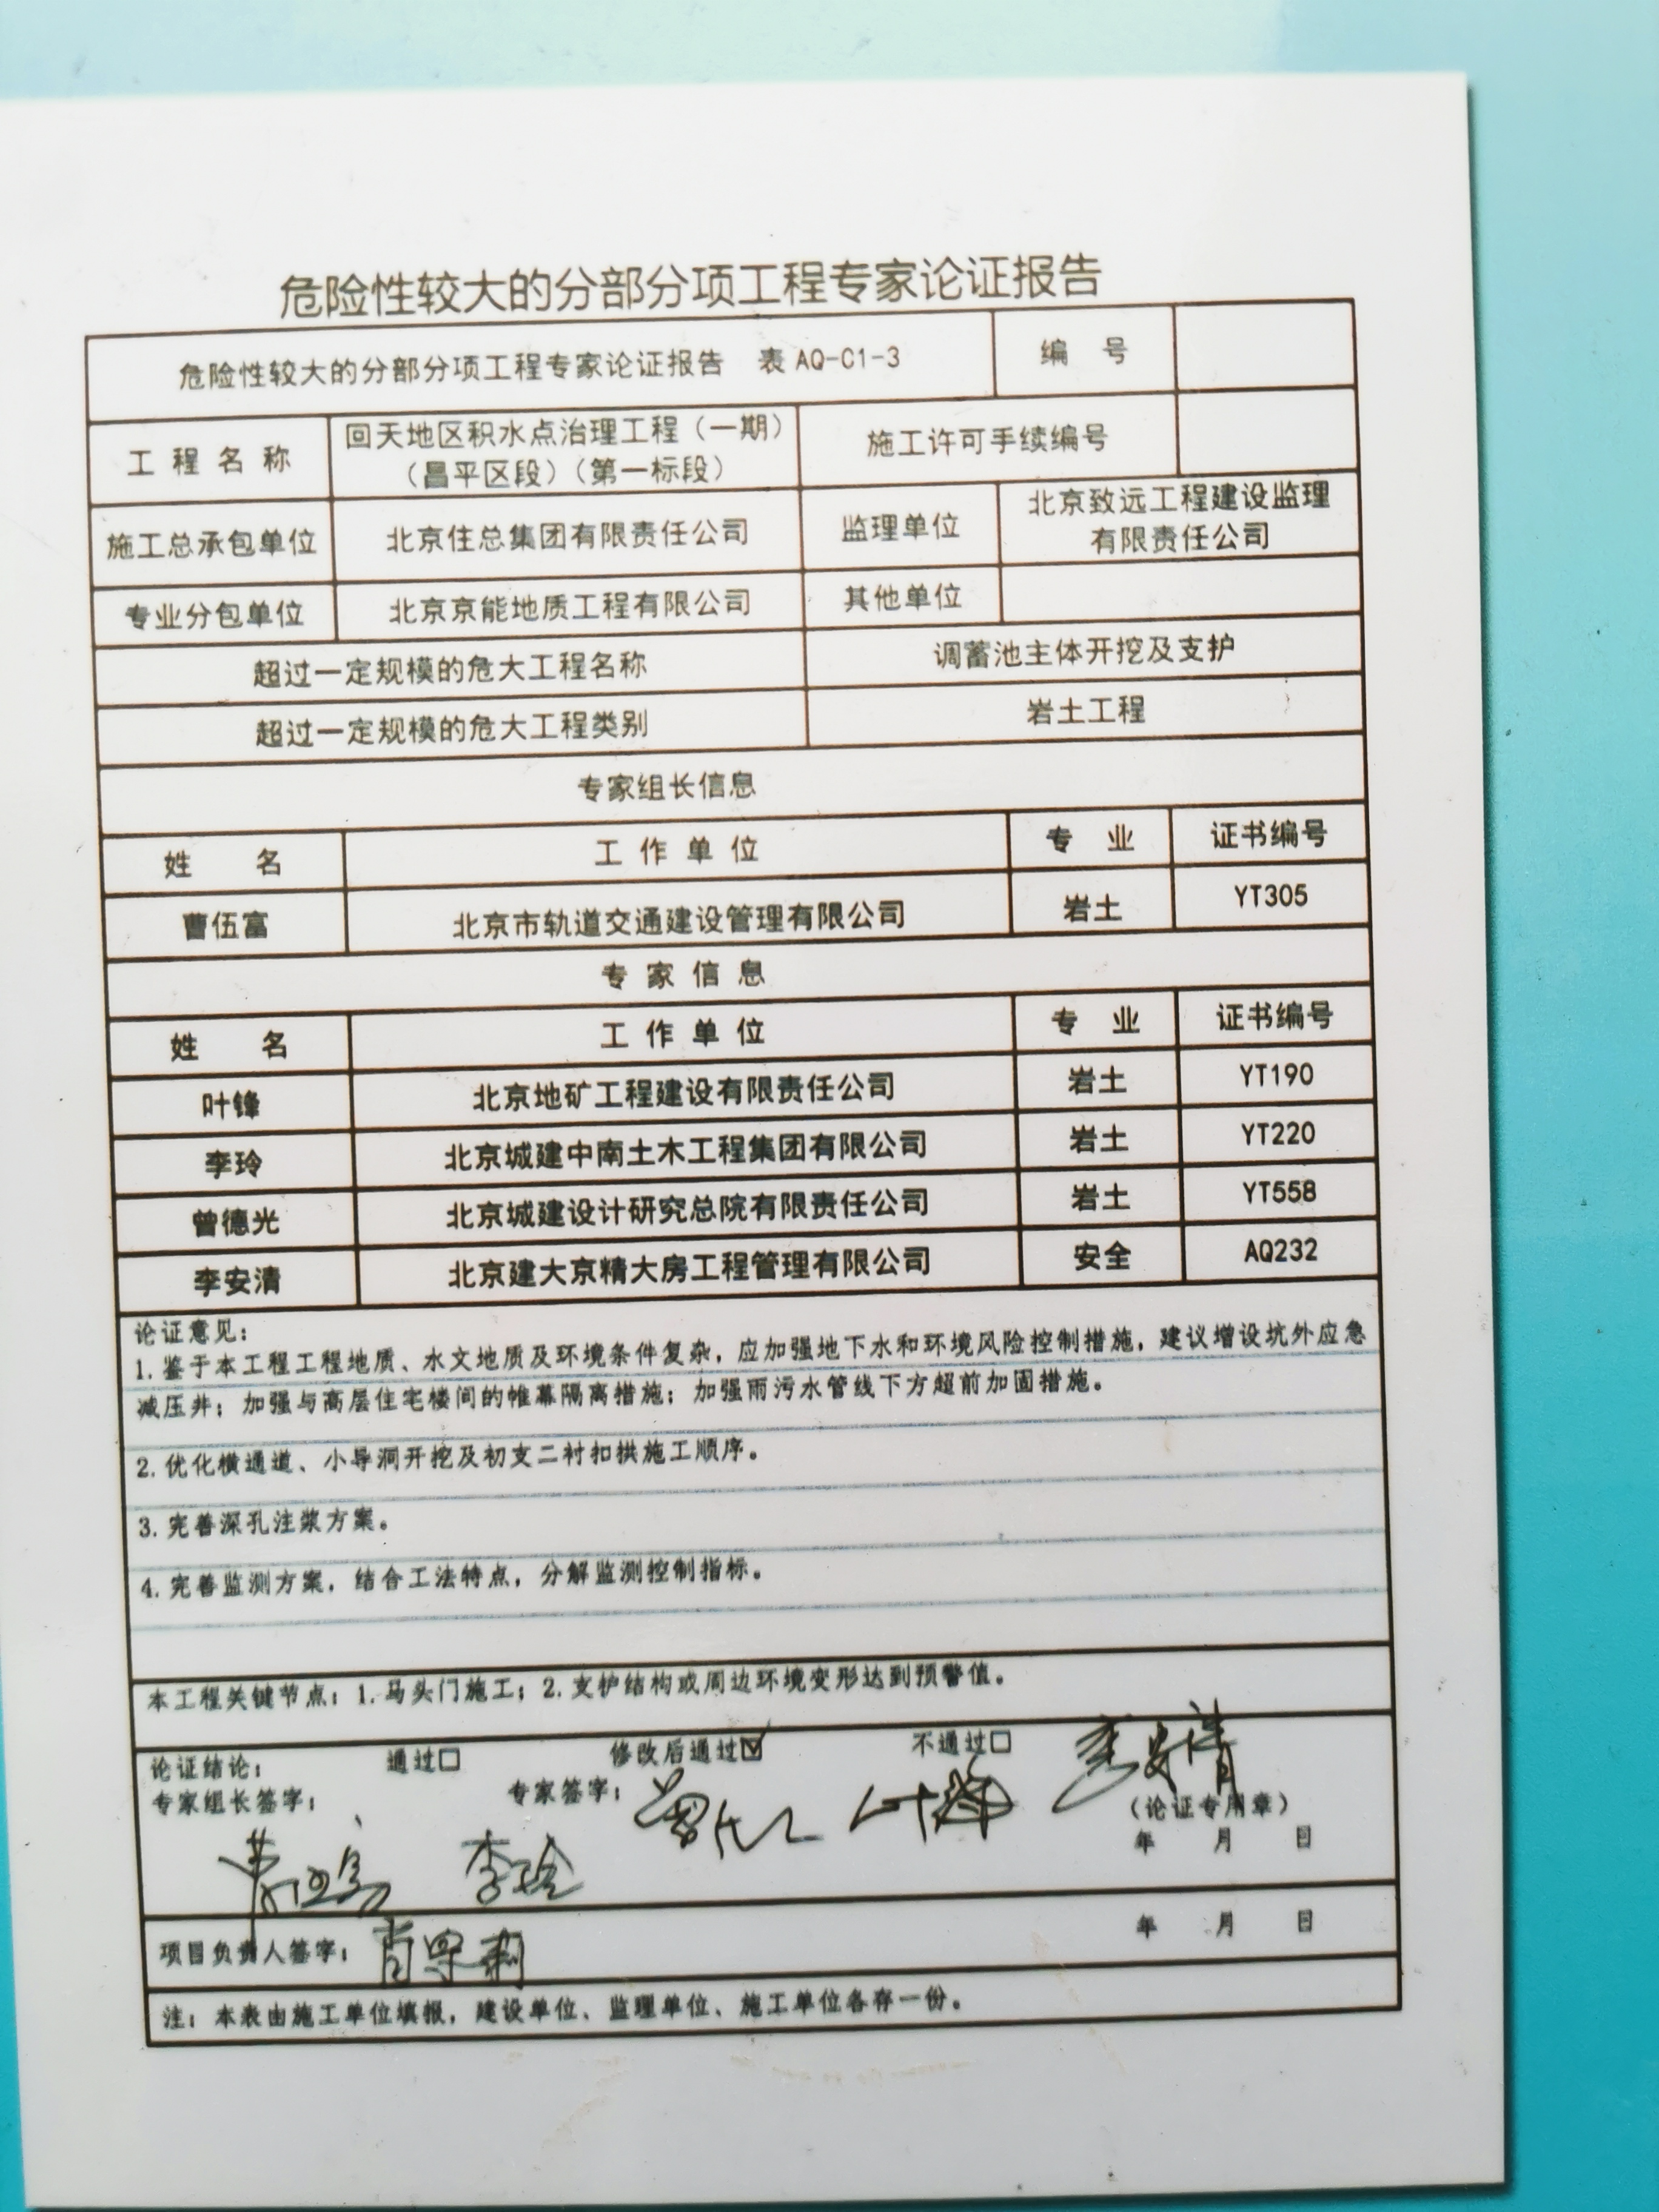 危险性较大的分部分项工程专家论证报告
危险性较大的分部分项工程专家论证报告 表 AQ-C1-3 编 号
工 程 名 称 回天地区积水点治理工程（一期）
（昌平区段）（第一标段） 施工许可手续编号
施工总承包单位 北京住总集团有限责任公司 监理单位 北京致远工程建设监理
有限责任公司
专业分包单位 北京京能地质工程有限公司 其他单位
超过一定规模的危大工程名称 调蓄池主体开挖及支护
超过一定规模的危大工程类别 岩土工程
专家组长信息
姓 名 工 作 单 位 专 业 证书编号
曹伍富 北京市轨道交通建设管理有限公司 岩土 YT305
专 家 信 息
姓 名 工 作 单 位 专 业 证书编号
叶锋 北京地矿工程建设有限责任公司 岩土 YT190
李玲 北京城建中南土木工程集团有限公司 岩土 YT220
曾德光 北京城建设计研究总院有限责任公司 岩土 YT558
李安清 北京建大京精大房工程管理有限公司 安全 AQ232
论证意见：
1. 鉴于本工程工程地质、水文地质及环境条件复杂，应加强地下水和环境风险控制措施，建议增设坑外应急
减压井；加强与高层住宅楼间的帷幕隔离措施；加强雨污水管线下方超前加固措施。
2. 优化横通道、小导洞开挖及初支二衬扣拱施工顺序。
3. 完善深孔注浆方案。
4. 完善监测方案，结合工法特点，分解监测控制指标。
本工程关键节点：1. 马头门施工；2. 支护结构或周边环境变形达到预警值。
论证结论： 通过□ 修改后通过☑ 不通过□
专家组长签字： 专家签字： 叶锋 李安清
（论证专用章）
年 月 日
李玲
项目负责人签字： 年 月 日
注：本表由施工单位填报，建设单位、监理单位、施工单位各存一份。